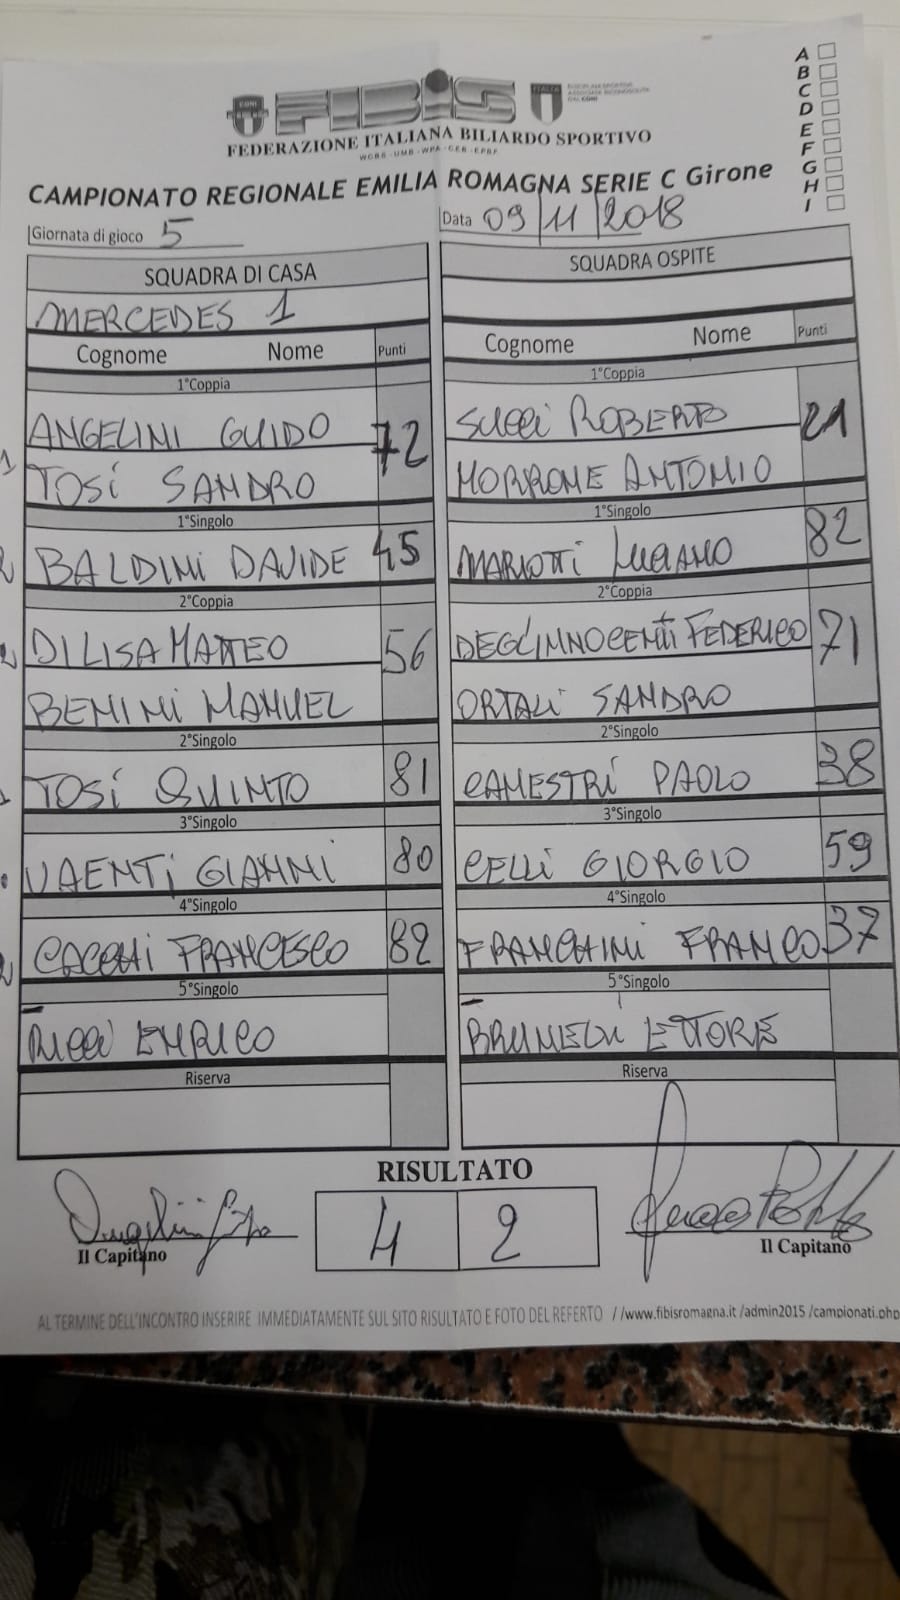 A
B
C
D
E
F
G
H
I
CONI
FIBIS
ITALIA
FEDERAZIONE ITALIANA BILIARDO SPORTIVO
WCBS - UMB - WPA - CEB - EPBF
CAMPIONATO REGIONALE EMILIA ROMAGNA SERIE C Girone
Giornata di gioco 5
Data 09/11/2018
SQUADRA DI CASA
SQUADRA OSPITE
MERCEDES 1
Cognome Nome Punti
Cognome Nome Punti
1°Coppia
1°Coppia
ANGELINI GUIDO 72
SUCCI ROBERTO 21
TOSI SANDRO
MORRONE ANTONIO
1°Singolo
1°Singolo
BALDINI DAVIDE 45
MARIOTTI LUCIANO 82
2°Coppia
2°Coppia
DI LISA MATTEO 56
DEGL'INNOCENTI FEDERICO 71
BENINI MANUEL
ORTALI SANDRO
2°Singolo
2°Singolo
TOSI QUINTO 81
CANESTRI PAOLO 38
3°Singolo
3°Singolo
VAENTI GIANNI 80
CELLI GIORGIO 59
4°Singolo
4°Singolo
CACCHI FRANCESCO 82
FRANCHINI FRANCO 37
5°Singolo
5°Singolo
RICCI ENRICO
BRUNELLI ETTORE
Riserva
Riserva
RISULTATO
4 2
Il Capitano
Il Capitano
AL TERMINE DELL'INCONTRO INSERIRE IMMEDIATAMENTE SUL SITO RISULTATO E FOTO DEL REFERTO //www.fibisromagna.it /admin2015 /campionati.php